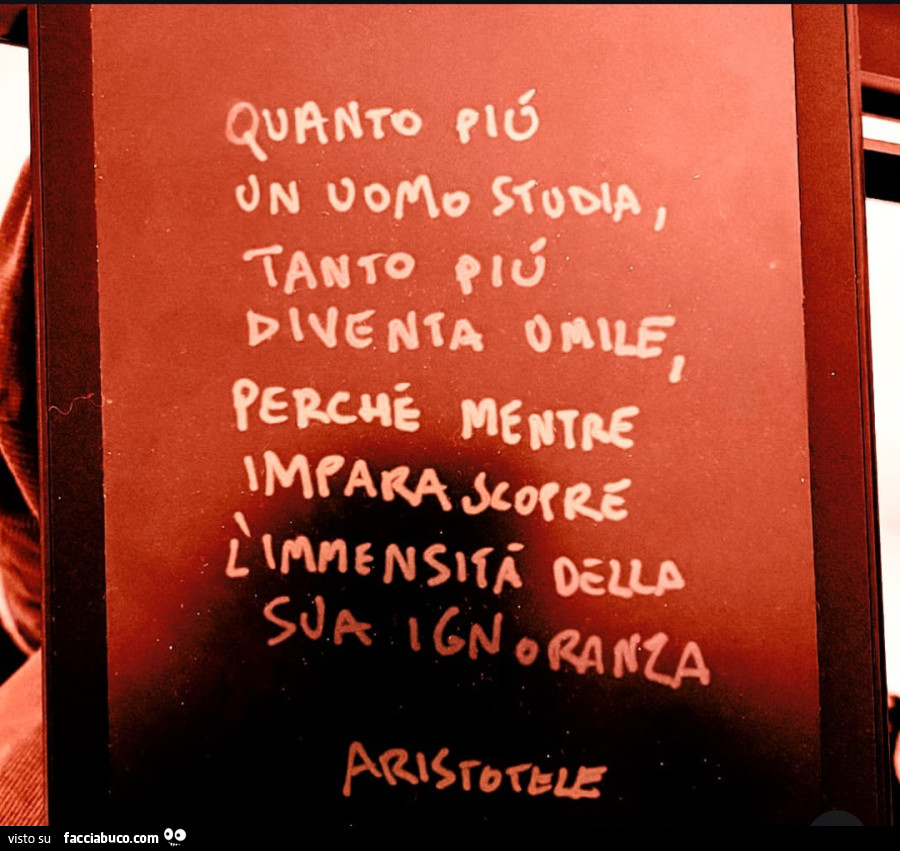 QUANTO PIÚ
UN UOMO STUDIA,
TANTO PIÚ
DIVENTA UMILE,
PERCHÉ MENTRE
IMPARA SCOPRE
L'IMMENSITÁ DELLA
SUA IGNORANZA
ARISTOTELE
visto su facciabuco.com